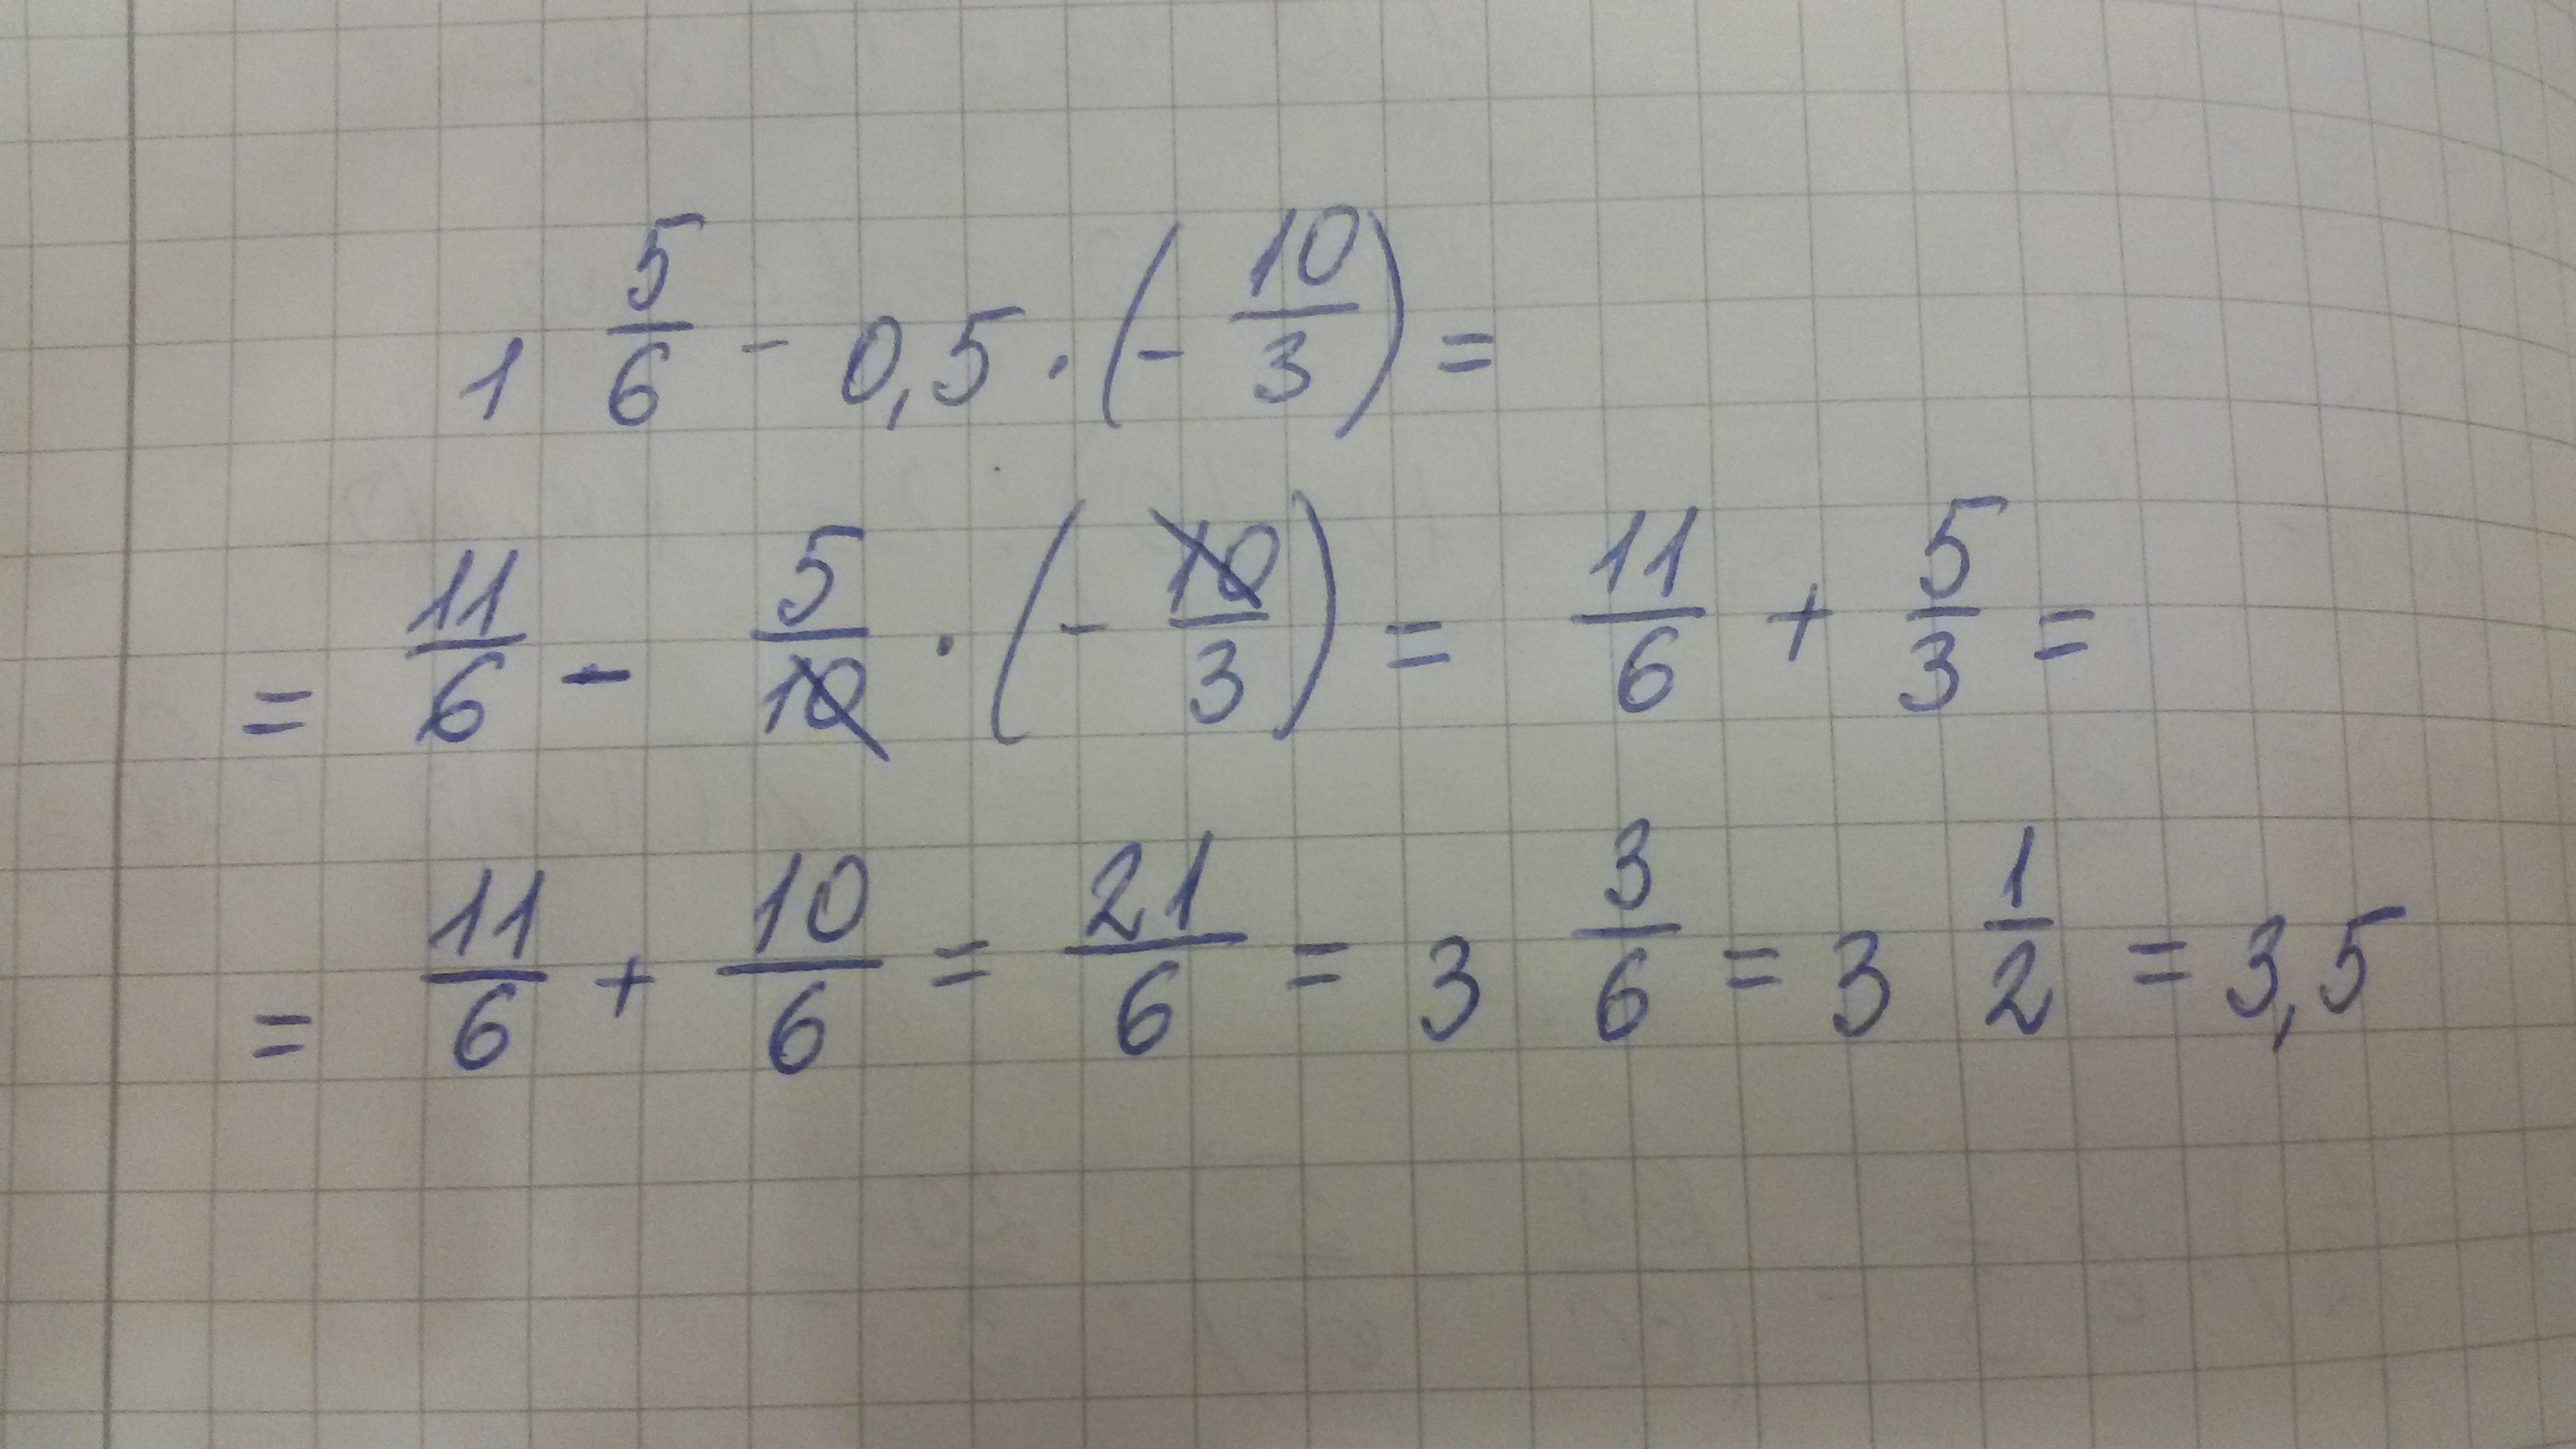 1 5/6 - 0,5 · (- 10/3) =
= 11/6 - 5/10 · (- 10/3) = 11/6 + 5/3 =
= 11/6 + 10/6 = 21/6 = 3 3/6 = 3 1/2 = 3,5